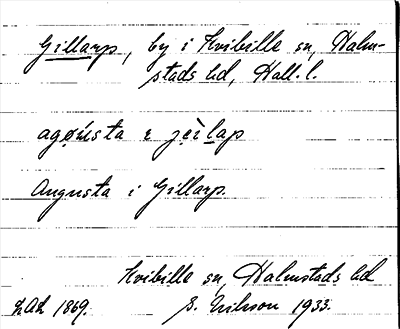 Gillarp, by i Kvibille sn, Halm-
stads hd, Hall. l.
agǿusta ɛ jèìlap
Augusta i Gillarp.
Kvibille sn, Halmstads hd
LAL 1869.
S. Nilsson 1933.